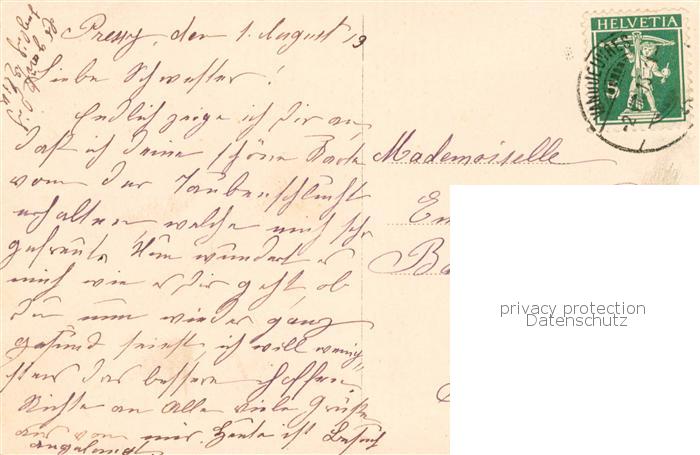 Pressy, den 1. August 19
Liebe Schwester!
Endlich zeige ich Dir an,
daß ich deine schöne Karte
von der Taubenschlucht
erhalten, welche mich sehr
gefreut. Nun wundert es
mich wie es Dir geht, ob
Du nun wieder ganz
gesund seiest, ich will wenig-
stens das bessere hoffen.
Richte an Alle viele Grüße
aus von mir. Heute ist
HELVETIA
VANDOEUVRES
Mademoiselle
privacy protection
Datenschutz